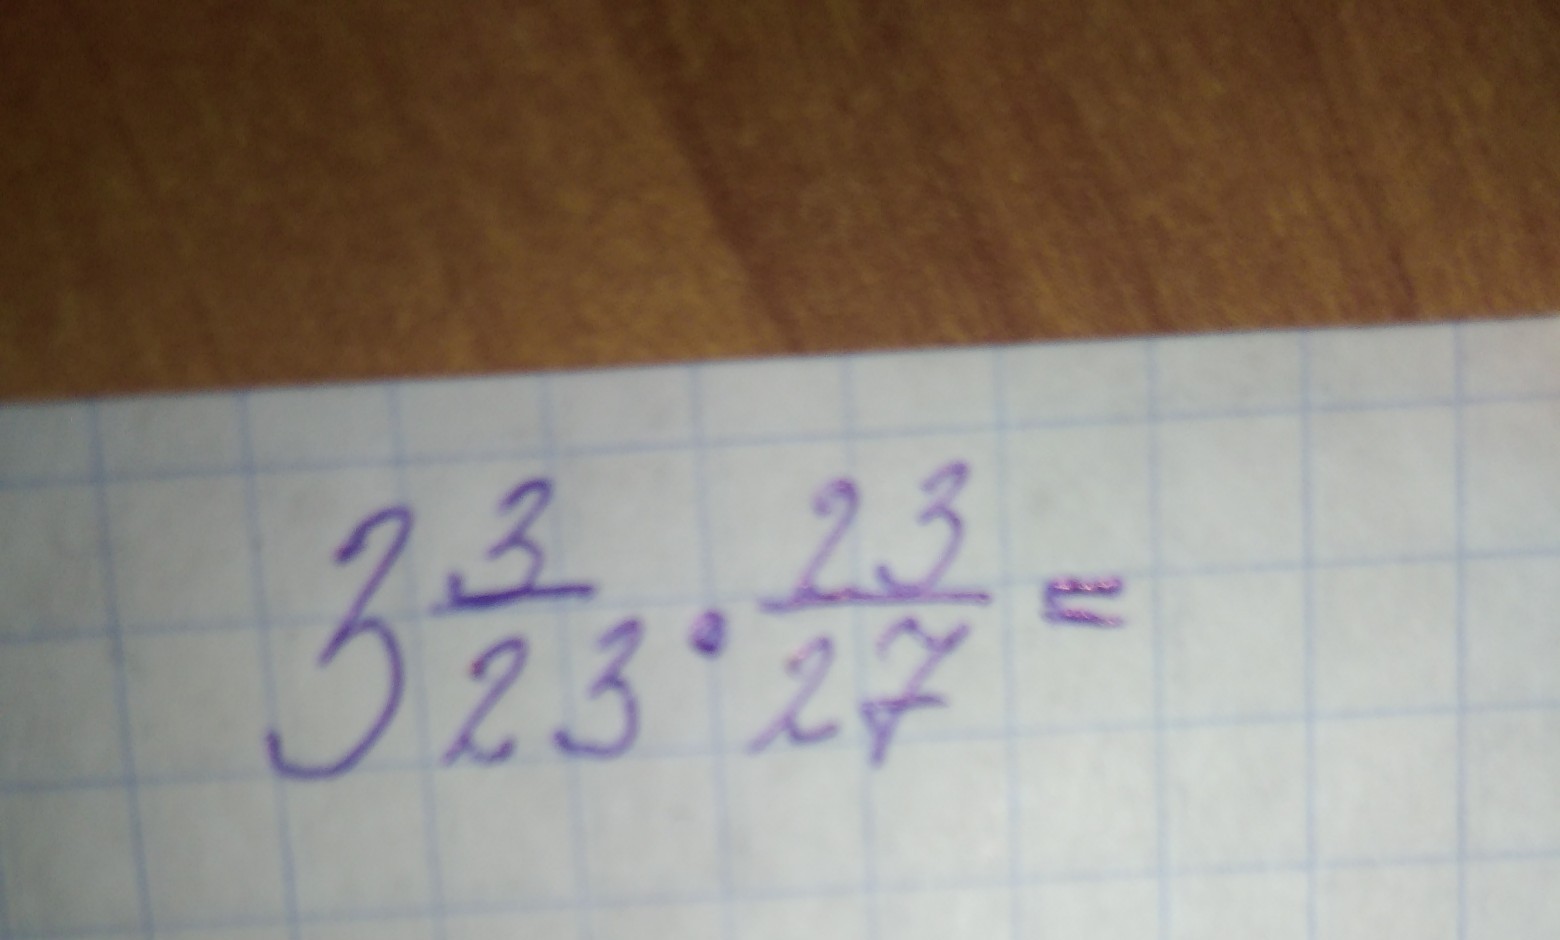 3 3/23 · 23/27 =